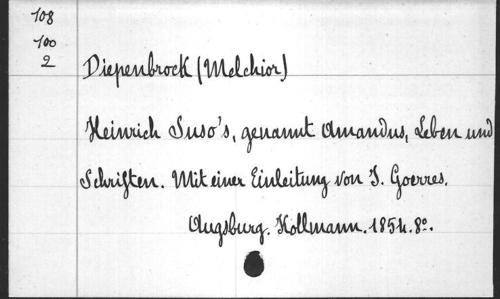 108
100
2
Diepenbrock (Melchior)
Heinrich Suso's, genannt Amandus, Leben und
Schriften. Mit einer Einleitung von J. Goerres.
Augsburg. Kollmann. 1854. 8º.